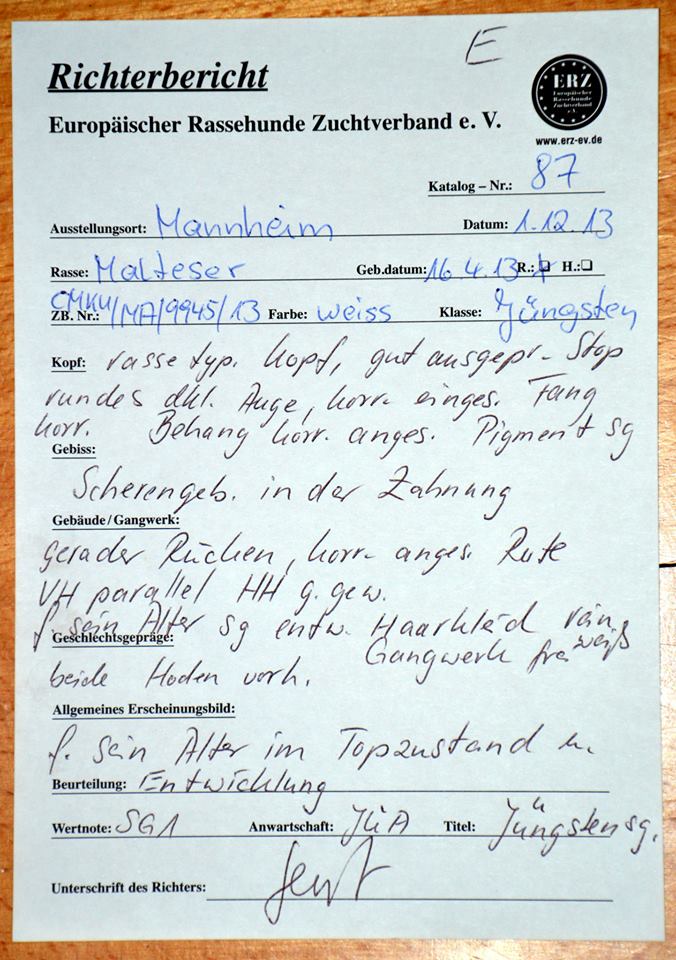 E
Richterbericht
Europäischer Rassehunde Zuchtverband e. V.
ERZ
Europäischer
Rassehunde
Zuchtverband
e.V.
www.erz-ev.de
Katalog – Nr.: 87
Ausstellungsort: Mannheim Datum: 1.12.13
Rasse: Malteser Geb.datum: 16.4.13 R.: H.:
ZB. Nr.: CMKU/MA/9945/13 Farbe: weiss Klasse: Jüngsten
Kopf: rassetyp. Kopf, gut ausgepr. Stop
rundes dkl. Auge, korr. einges. Fang
korr. Behang korr. anges. Pigment sg
Gebiss:
Scherengeb. in der Zahnung
Gebäude/Gangwerk:
gerader Rücken, korr. anges. Rute
VH parallel HH g. gew.
f. sein Alter sg entw. Haarkleid rein
weiß
Geschlechtsgepräge:
beide Hoden vorh. Gangwerk frei
Allgemeines Erscheinungsbild:
f. sein Alter im Topzustand u.
Beurteilung: Entwicklung
Wertnote: SG1 Anwartschaft: JüA Titel: Jüngstensg.
Unterschrift des Richters: